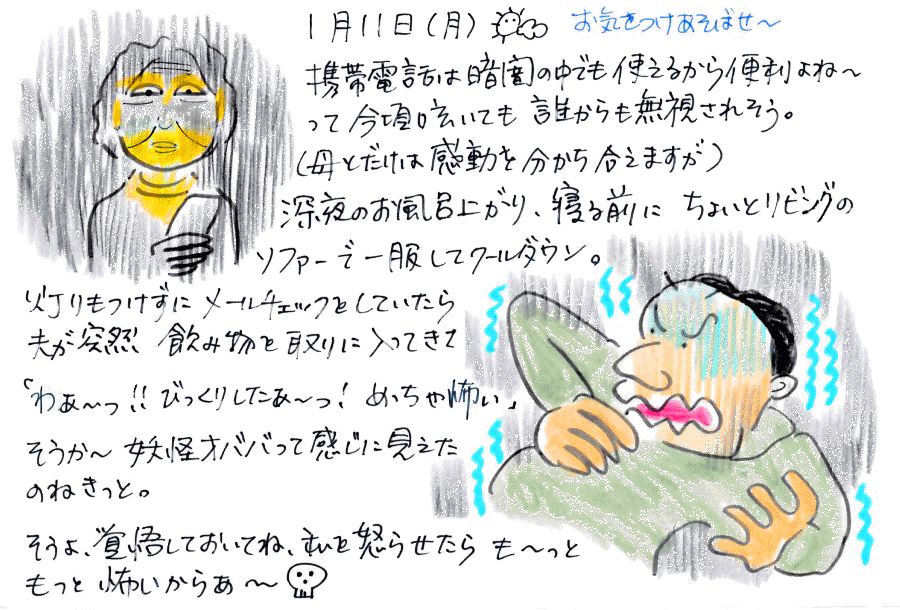 1月11日(月) お気をつけあそばせ〜
携帯電話は暗闇の中でも使えるから便利よね〜
って今頃呟いても誰からも無視されそう。
(母とだけは感動を分かち合えますが)
深夜のお風呂上がり、寝る前にちょいとリビングの
ソファーで一服してクールダウン。
灯りもつけずにメールチェックをしていたら
夫が突然飲み物を取りに入ってきて
「わぁ〜っ!!びっくりしたぁ〜っ!めっちゃ怖い」
そうか〜妖怪オババって感じに見えた
のねきっと。
そうよ、覚悟しておいてね、私を怒らせたらも〜っと
もっと怖いからぁ〜